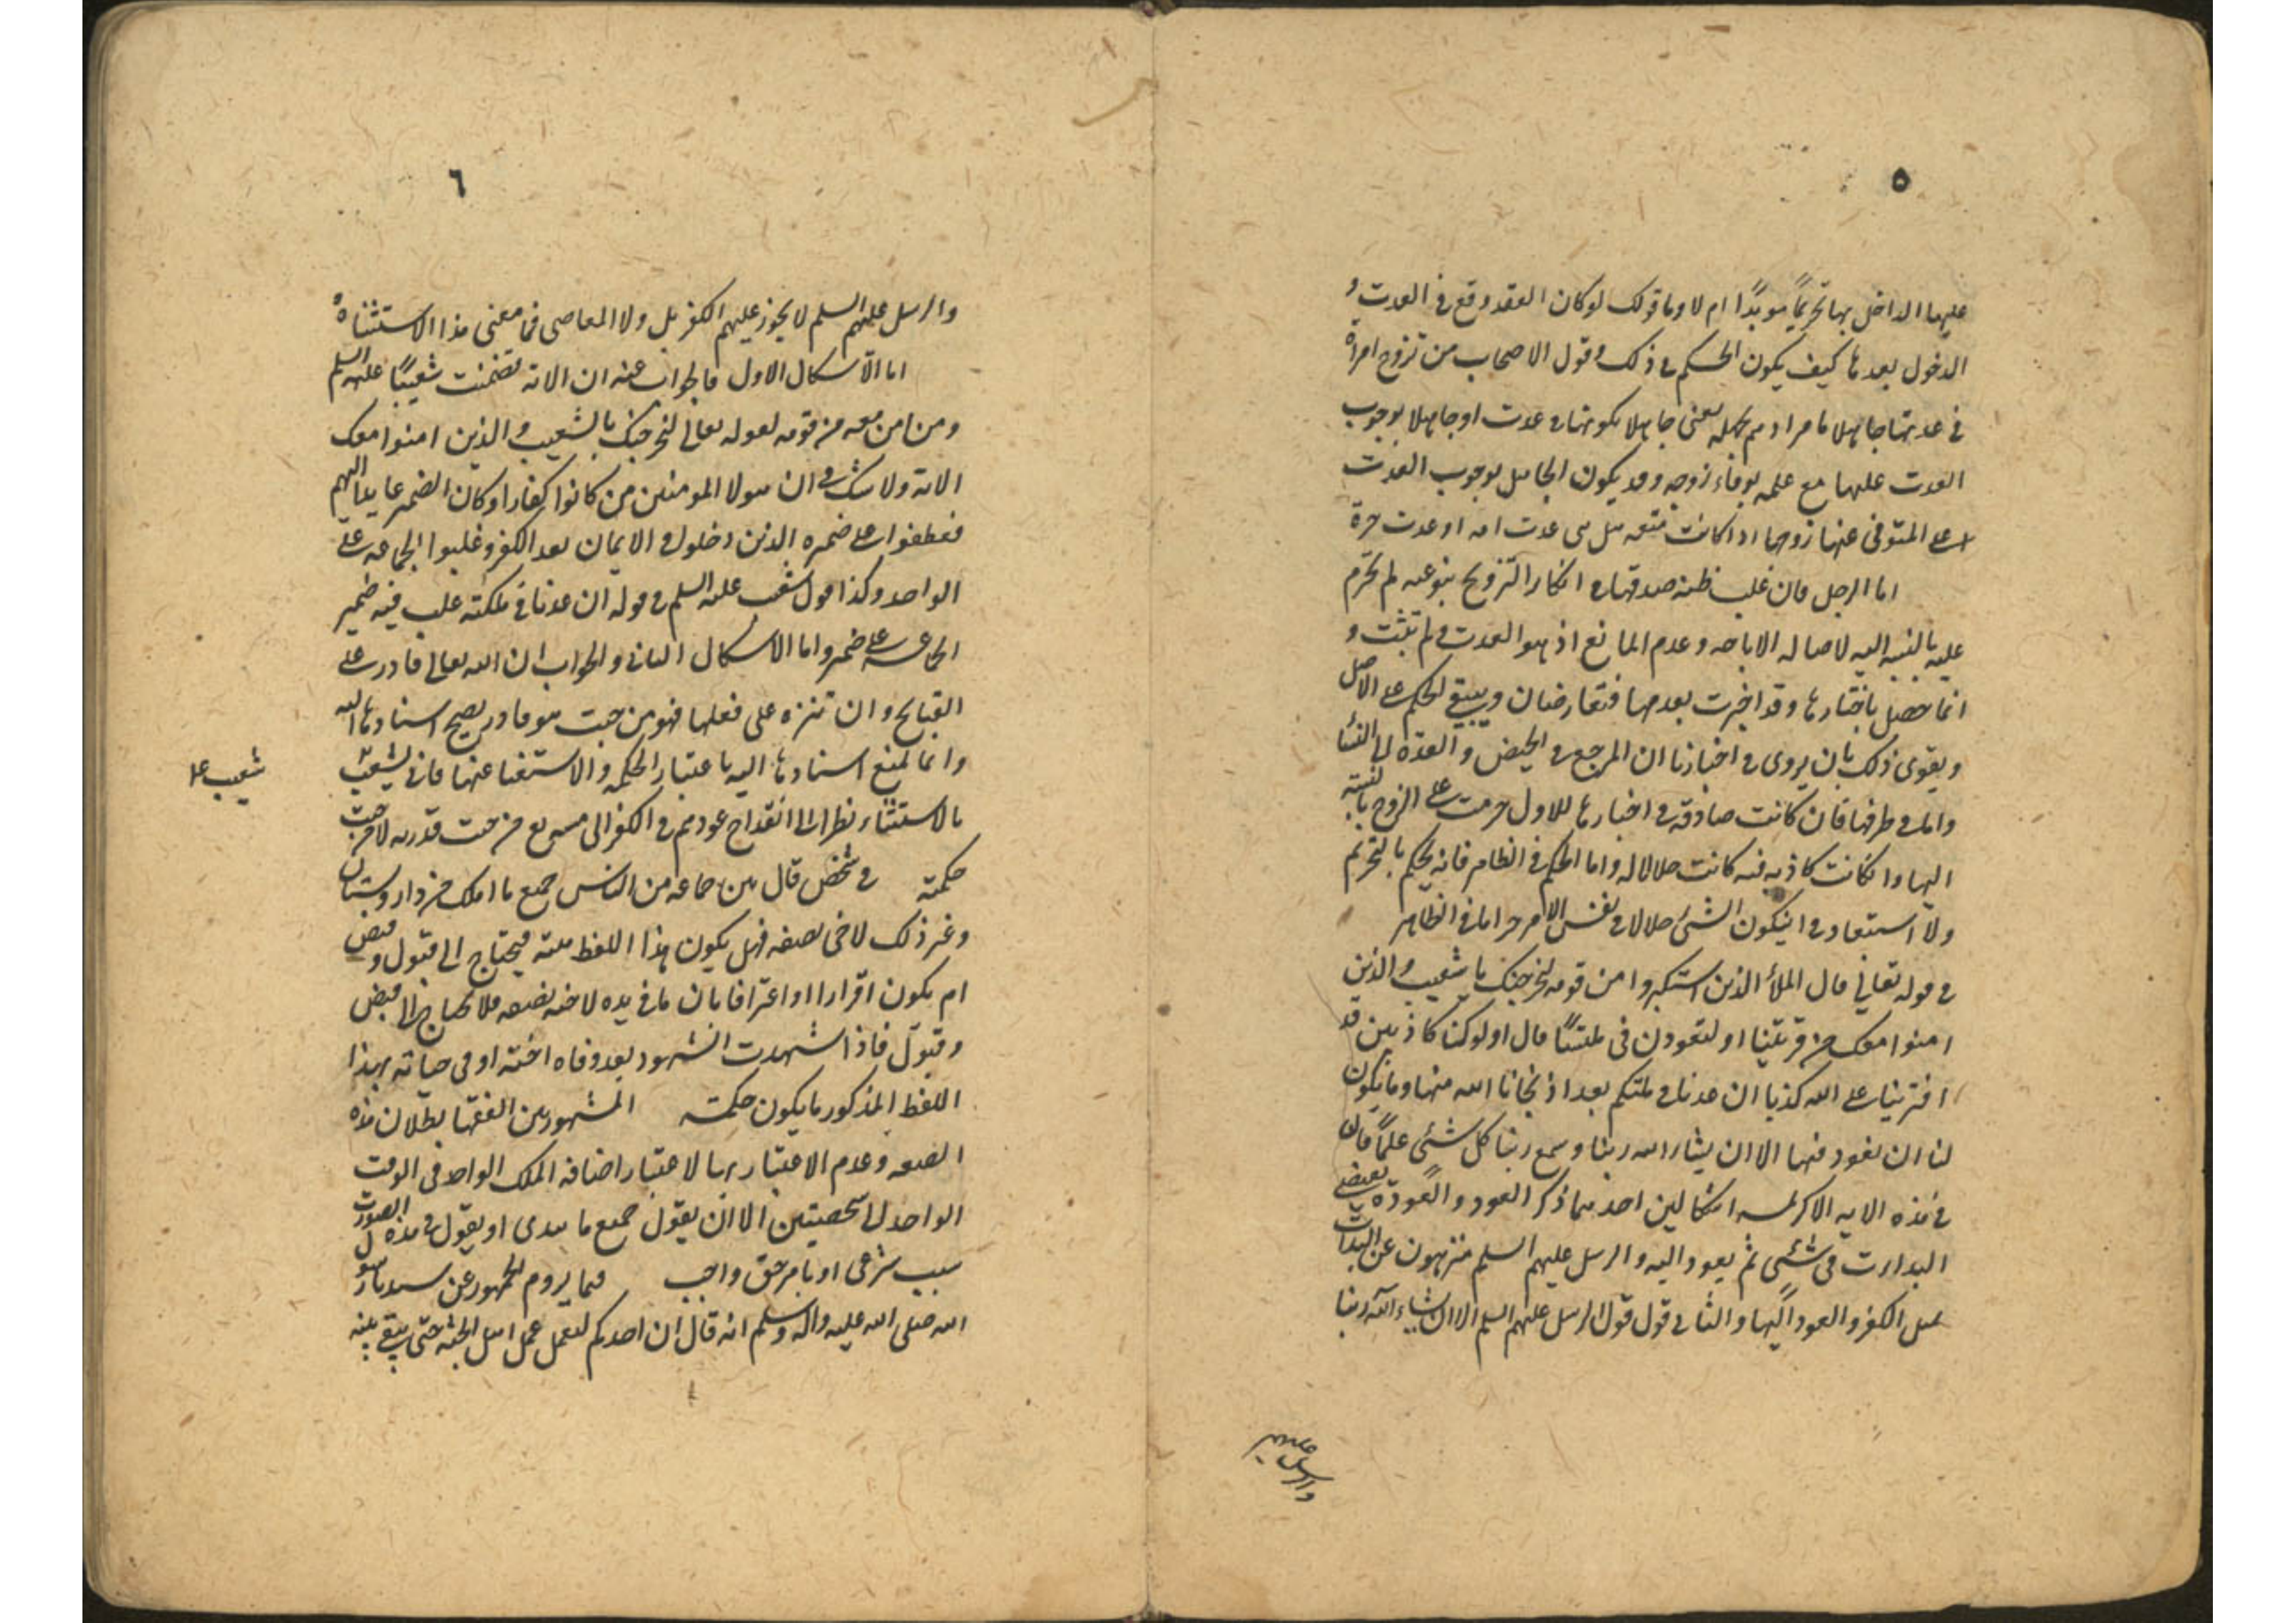 ٥
عليها الداخل بها تحريماً موبداً ام لا وما قولك لو كان العقد وقع في العدت و
الدخول بعدها كيف يكون الحكم في ذلك وقول الاصحاب من تزوج امراة
في عدتها جاهلا ما مرادهم بجهله يعنى جاهلا بكونها في عدت او جاهلا بوجوب
العدت عليها مع علمه بوفاء زوجه وقد يكون الجاهل بوجوب العدت
على المتوفى عنها زوجها اذا كانت متعه هل هى عدت امه او عدت حرة
اما الرجل فان غلب ظنه صدقها في انكار التزويج بنوعيه لم تحرم
عليه بالنسبه اليه لاصاله الاباحه وعدم المانع اذ هو العدت ولم تثبت و
انما حصل باخبارها وقد اخبرت بعدمها فتعارضان ويبقى الحكم على الاصل
ويقوى ذلك بان يروى في اخبارنا ان المرجع في الحيض والعدة الى النساء
واما في طرفها فان كانت صادقه في اخبارها للاول حرمت على الزوج بالنسبة
اليها وانكانت كاذبه فيه كانت حلالا له واما الحكم في الظاهر فانه يحكم بالتحريم
ولا استبعاد في ان يكون الشئ حلالا في نفس الامر حراما في الظاهر
في قوله تعالى قال الملأ الذين استكبروا من قومه لنخرجنك يا شعيب والذين
امنوا معك من قريتنا او لتعودن فى ملتنا قال اولو كنا كارهين قد
افترينا على الله كذبا ان عدنا في ملتكم بعد اذ نجانا الله منها وما يكون
لنا ان نعود فيها الا ان يشاء الله ربنا وسع ربنا كل شئى علماً فان
في هذه الايه الاكريمه اشكالين احدهما ذكر العود والعودة يقتضى
البدارت فى شئى ثم يعود اليه والرسل عليهم السلم منزهون عن البدات
على الكفر والعود اليها والثانى قول قول الرسل عليهم السلم الا ان يشاء الله ربنا
والرسل عليهم
٦
والرسل عليهم السلم لا يجوز عليهم الكفر بل ولا المعاصى فما معنى هذا الاستثناء
اما الاشكال الاول فالجواب عنه ان الاية تضمنت شعيبًا عليه السلم
ومن امن معه من قومه لقوله تعالى لنخرجنك يا شعيب والذين امنوا معك
الاية ولا شك في ان هولاء المومنين من كانوا كفارا وكان الضمير عايدا اليهم
فعطفوا على ضميره الذين دخلوا في الايمان بعد الكفر وغلبوا الجماعه على
الواحد وكذا قول شعيب عليه السلم في قوله ان عدنا في ملكته غلب فيه ضمير
الجماعه على ضميره واما الاشكال الثانى والجواب ان الله تعالى قادر على
القبايح وان تنزه على فعلها فهو من حيث هو قادر يصح اسنادها اليه
وانما لمنع اسنادها اليه باعتبار الحكمه والاستغنا عنها فاتى شعيب
شعيب علا
بالاستثناء نظرا الى انقداح عودهم في الكفر الى من حيث قدرته لا من حيث
حكمته في شخص قال بين جماعه من الناس جميع ما املك من دار وبستان
وغير ذلك لاخى نصفه فهل يكون هذا اللفظ هبته فيحتاج الى قبول وقبض
ام يكون اقرارا او اعترافا بان ما في يده لاخيه نصفه فلا يحتاج الى قبض
وقبول فاذا اشهدت الشهود بعد وفاه اخته او فى حياته بهذا
اللفظ المذكور ما يكون حكمته المشهور بين الفقها بطلان هذه
الصيغه وعدم الاعتبار بها لاعتبار اضافه الملك الواحد فى الوقت
الواحد الى شخصيتين الا ان يقول جميع ما بيدى او يقول في هذه الصورت
سبب شرعى او بامر حق واجب فيما يروم الجمهور عن سيدنا رسول
الله صلى الله عليه واله وسلم انه قال ان احدكم ليعمل عمل اهل الجنه حتى يبقى بينه